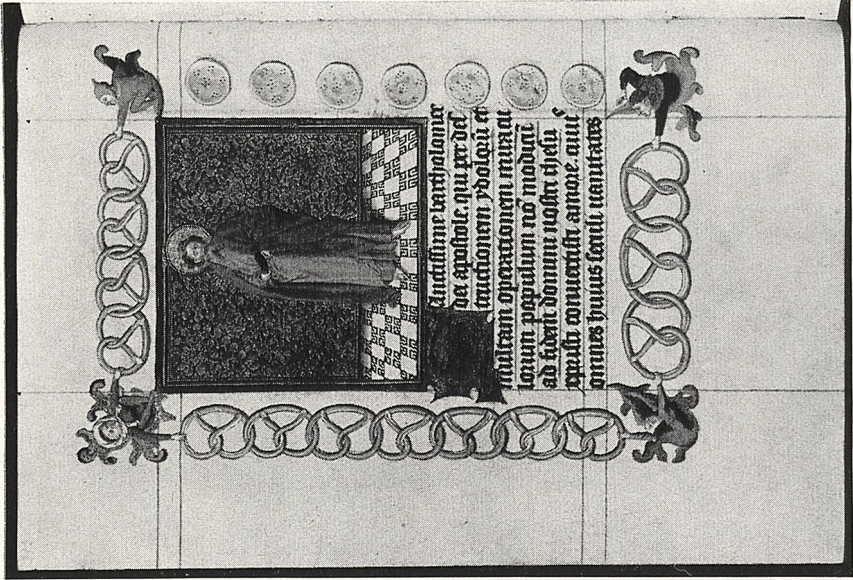 Sanctissime bartholomee
dei apostole. qui per des
tructionem ydolorū et
multam operationem mirabi
lorum populum nō modicū
ad fidem domini nostri ihesu
xpisti convertisti amore cuiꝰ
omnes huius seculi vanitates